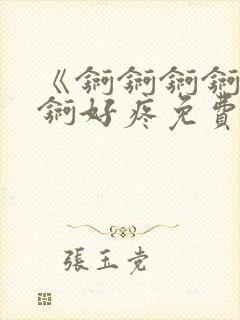 《錒錒錒錒
錒好疼免費
張玉党